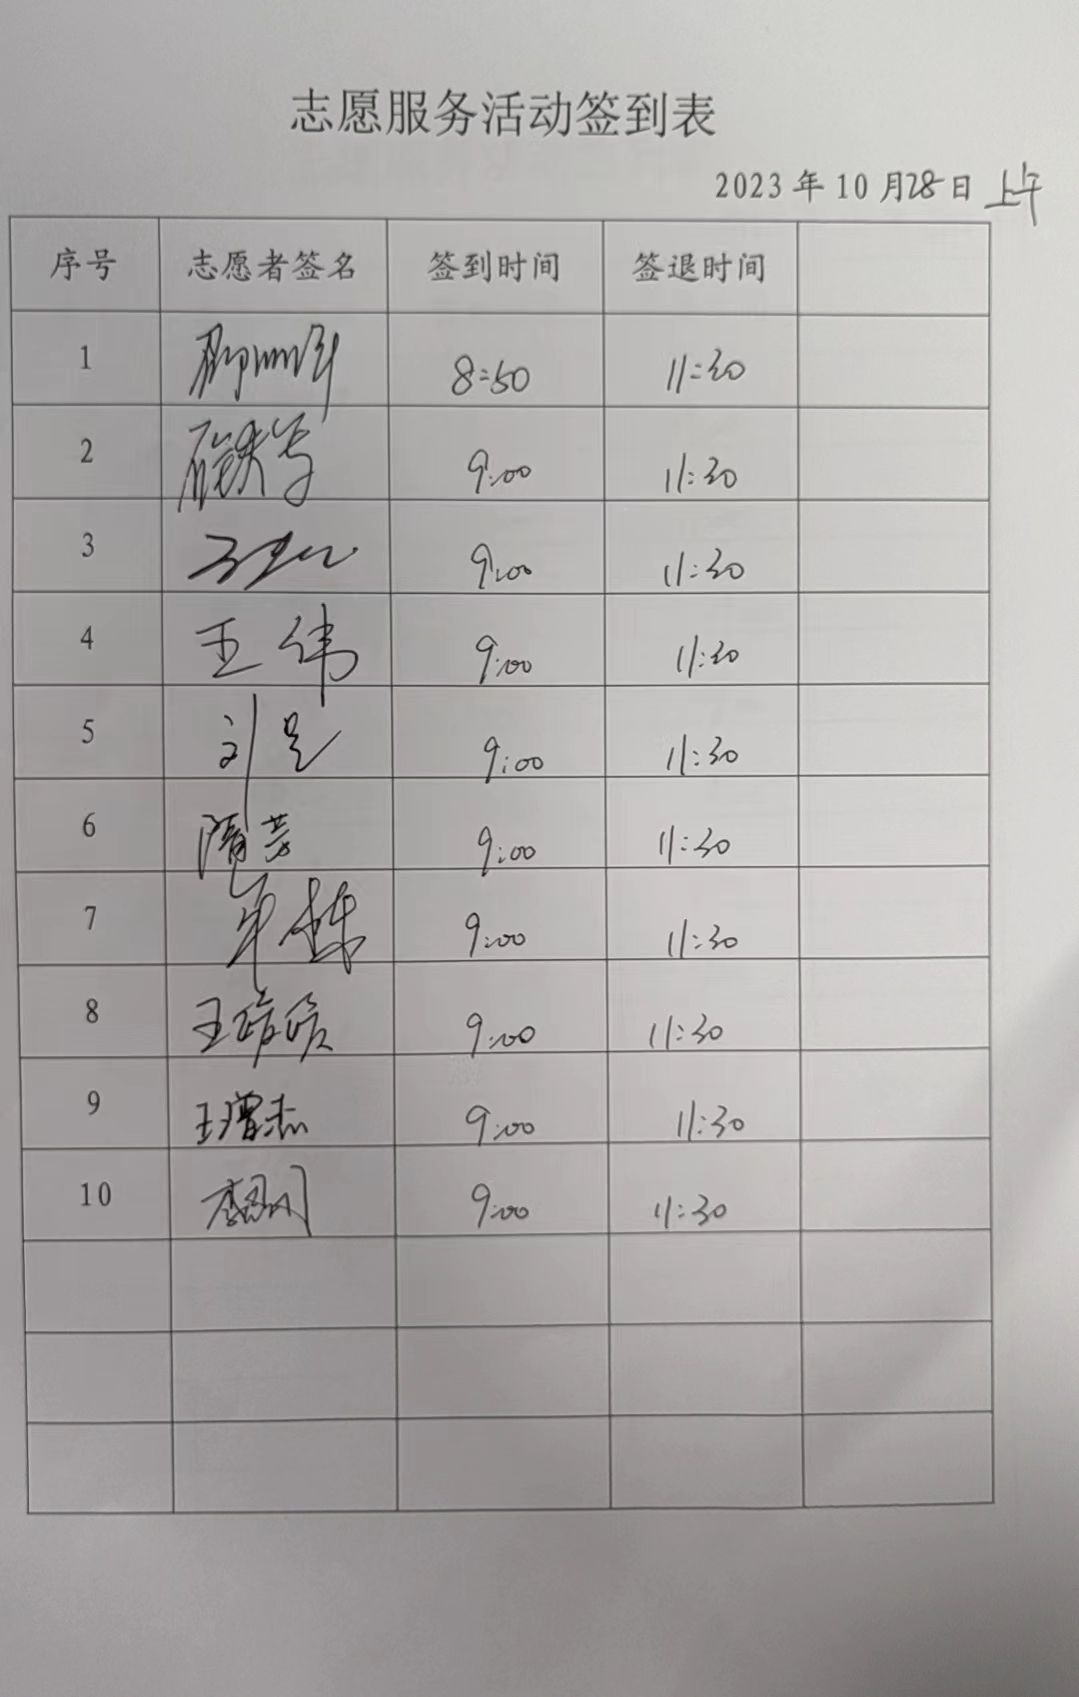 志愿服务活动签到表
2023年10月28日 上午
序号 志愿者签名 签到时间 签退时间
1 8:50 11:30
2 9:00 11:30
3 9:00 11:30
4 王伟 9:00 11:30
5 刘 9:00 11:30
6 隋芳 9:00 11:30
7 9:00 11:30
8 王 9:00 11:30
9 王增杰 9:00 11:30
10 李 9:00 11:30